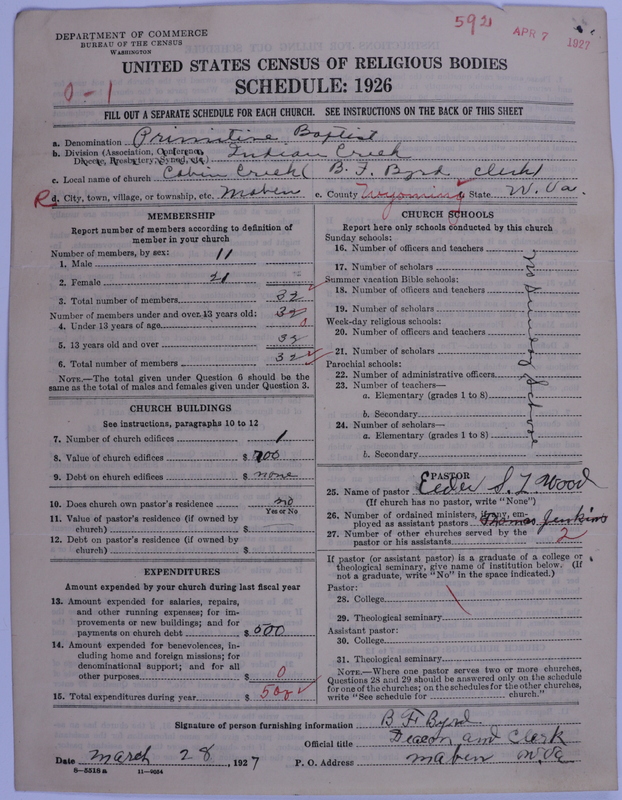 592
APR 7 1927
DEPARTMENT OF COMMERCE
BUREAU OF THE CENSUS
WASHINGTON
UNITED STATES CENSUS OF RELIGIOUS BODIES
0-1
SCHEDULE: 1926
FILL OUT A SEPARATE SCHEDULE FOR EACH CHURCH. SEE INSTRUCTIONS ON THE BACK OF THIS SHEET
a. Denomination Primitive Baptist
b. Division (Association, Conference, Diocese, Presbytery, Synod, etc.) Indian Creek
c. Local name of church Cabin Creek ( B. F. Byrd clerk)
R d. City, town, village, or township, etc. Maben e. County Wyoming State W. Va.
MEMBERSHIP
Report number of members according to definition of
member in your church
Number of members, by sex:
1. Male 11
2. Female 21
3. Total number of members 32
Number of members under and over 13 years old: 32
4. Under 13 years of age 0
5. 13 years old and over 32
6. Total number of members 32
NOTE.—The total given under Question 6 should be the
same as the total of males and females given under Question 3.
CHURCH BUILDINGS
See instructions, paragraphs 10 to 12
7. Number of church edifices 1
8. Value of church edifices $ 700
9. Debt on church edifices $ none
10. Does church own pastor's residence no
Yes or No
11. Value of pastor's residence (if owned by
church) $
12. Debt on pastor's residence (if owned by
church) $
EXPENDITURES
Amount expended by your church during last fiscal year
13. Amount expended for salaries, repairs,
and other running expenses; for im-
provements or new buildings; and for
payments on church debt $ 500
14. Amount expended for benevolences, in-
cluding home and foreign missions; for
denominational support; and for all
other purposes $ 0
15. Total expenditures during year $ 500
CHURCH SCHOOLS
Report here only schools conducted by this church
Sunday schools:
16. Number of officers and teachers
17. Number of scholars
Summer vacation Bible schools:
18. Number of officers and teachers
19. Number of scholars
Week-day religious schools:
20. Number of officers and teachers
21. Number of scholars
Parochial schools:
22. Number of administrative officers
23. Number of teachers—
a. Elementary (grades 1 to 8)
b. Secondary
24. Number of scholars—
a. Elementary (grades 1 to 8)
b. Secondary
PASTOR
25. Name of pastor Elder S. L. Wood
(If church has no pastor, write "None")
26. Number of ordained ministers, if any, em-
ployed as assistant pastors Thomas Jenkins
27. Number of other churches served by the
pastor or his assistants 2
If pastor (or assistant pastor) is a graduate of a college or
theological seminary, give name of institution below. (If
not a graduate, write "No" in the space indicated.)
Pastor:
28. College
29. Theological seminary
Assistant pastor:
30. College
31. Theological seminary
NOTE.—Where one pastor serves two or more churches,
Questions 28 and 29 should be answered only on the schedule
for one of the churches; on the schedules for the other churches,
write "See schedule for church."
Signature of person furnishing information B F Byrd
Official title Deacon and Clerk
Date March 28, 1927 P. O. Address maben W. Va
8-5518a 11-9054